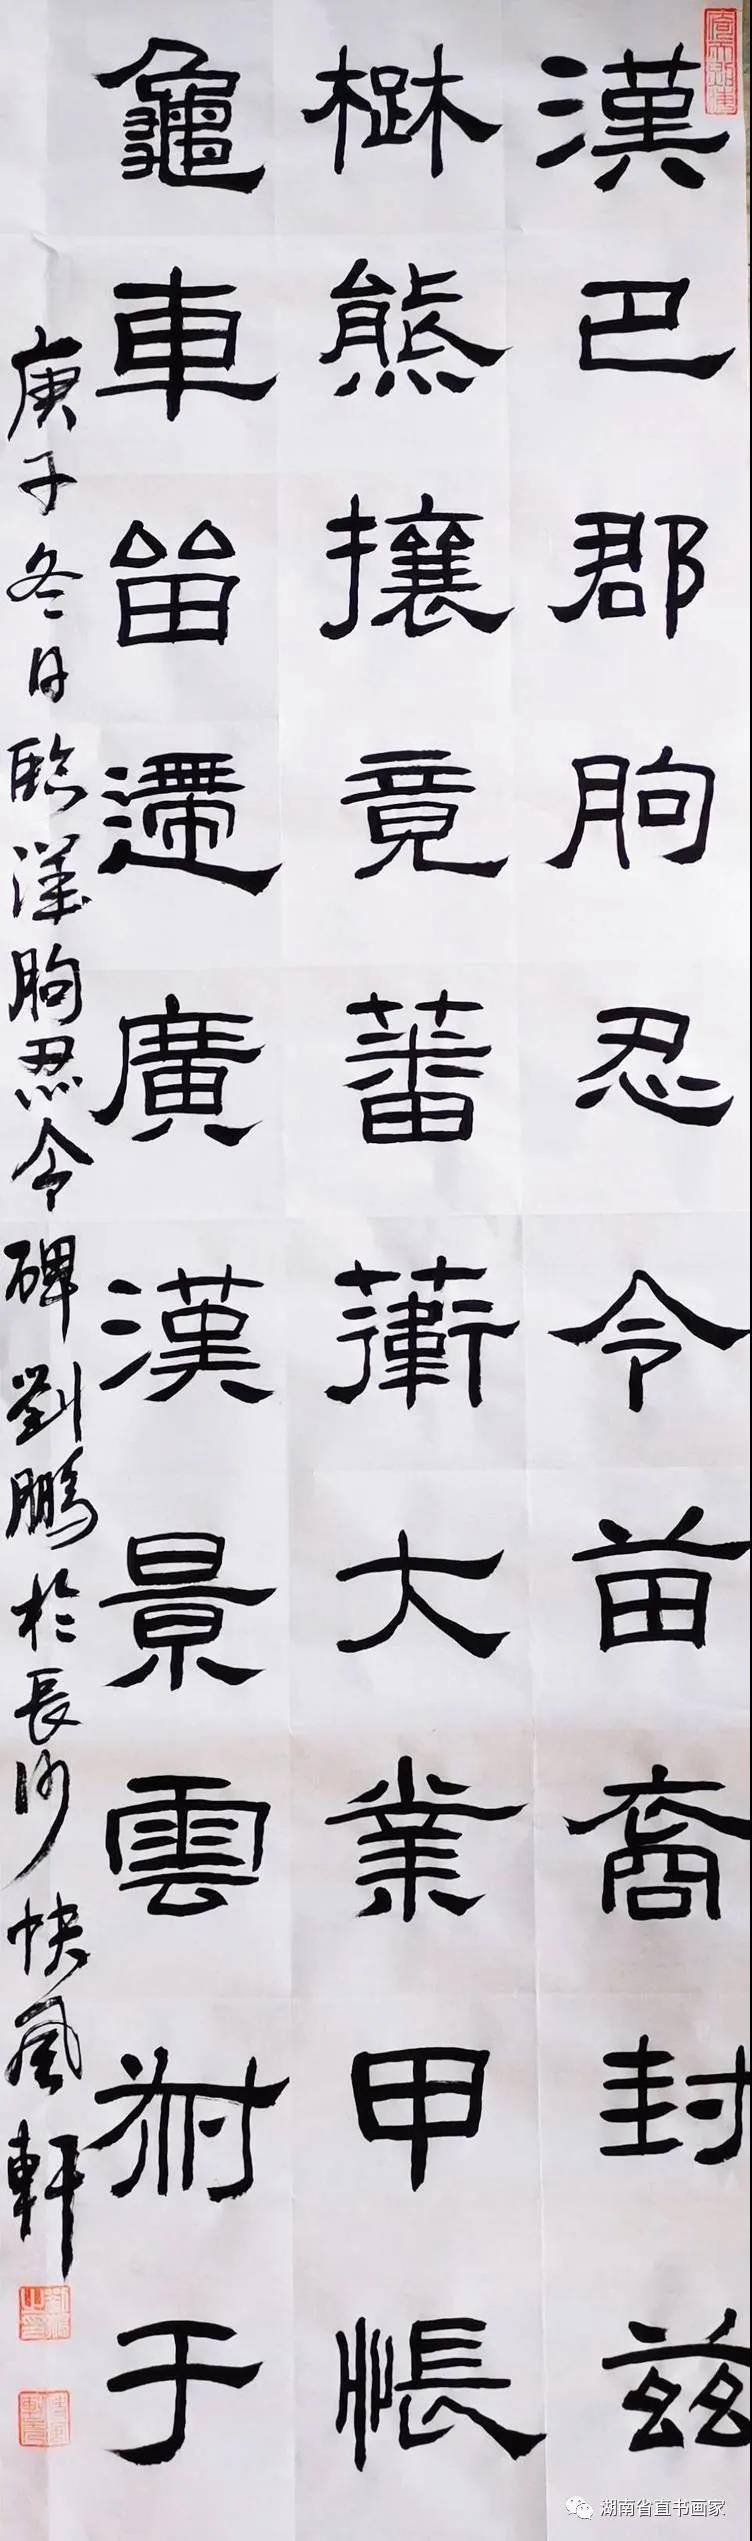 漢巴郡朐忍令苗裔封茲
楙熊攘竟蕃衛大業甲帳
龜車甾遰廣漢景雲附于
庚子冬日臨漢朐忍令碑劉鵬於長沙快風軒
湖南省直书画家